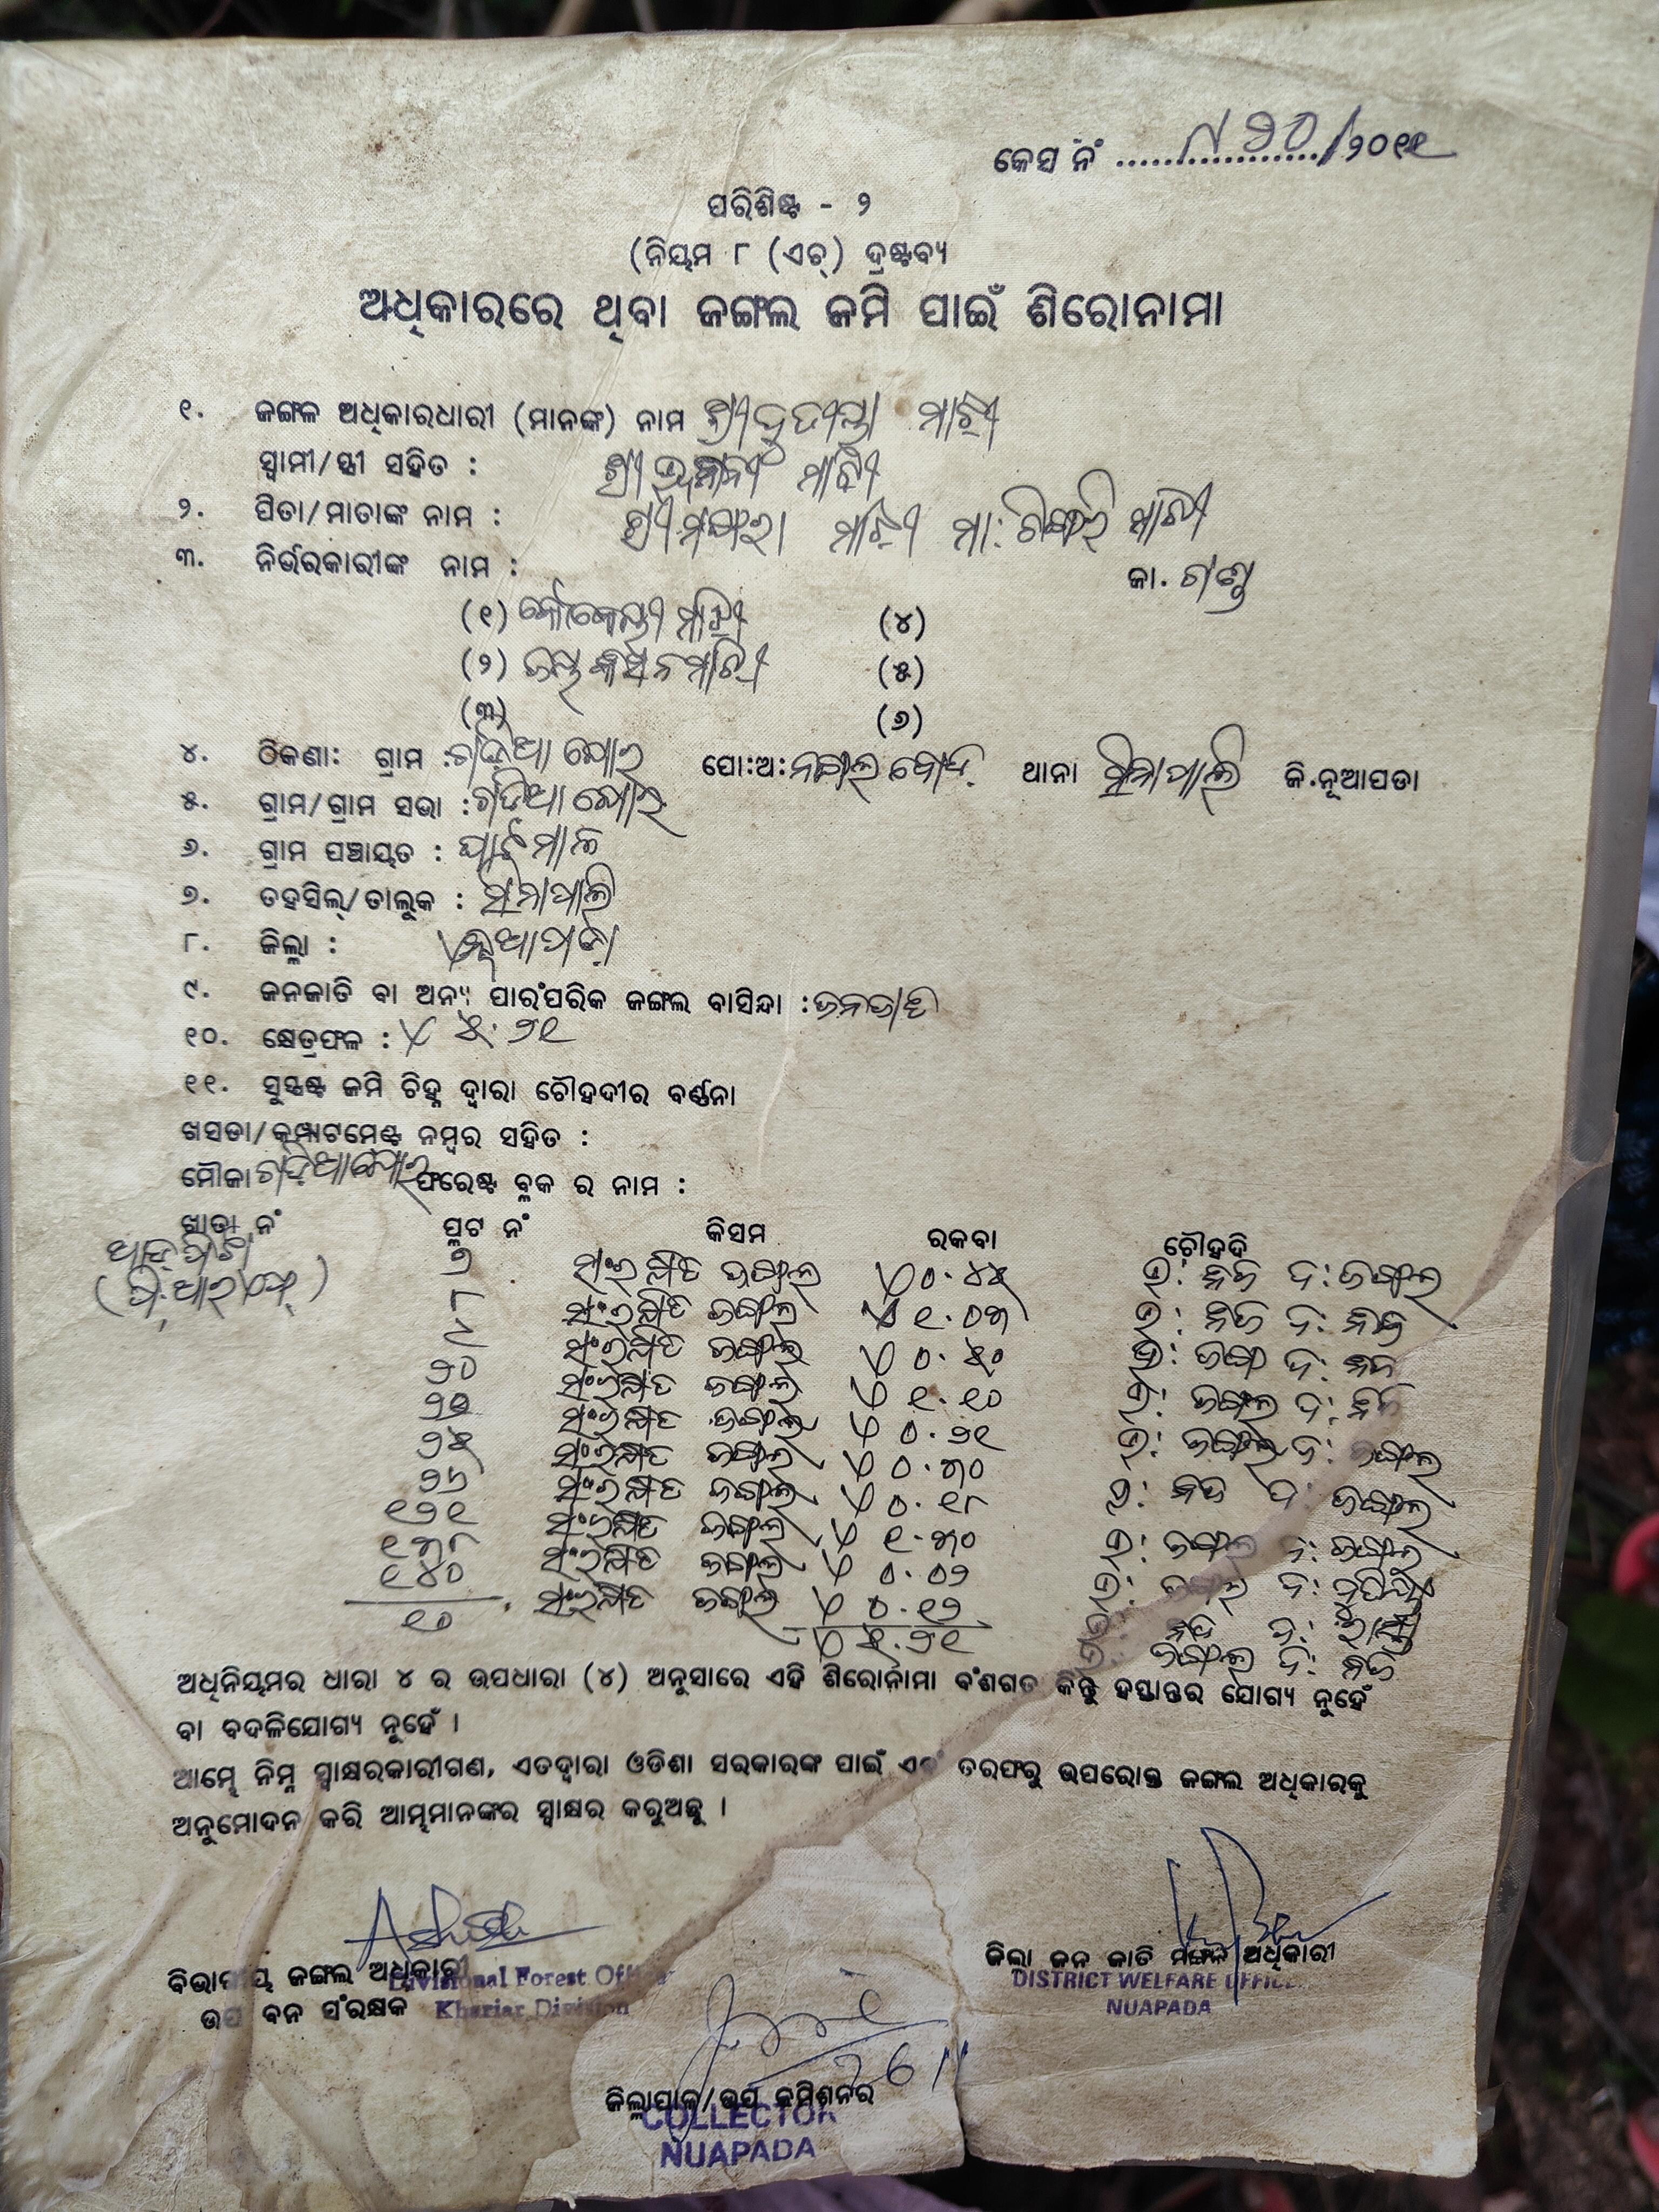 କେସ ନଂ ................./୨୦୧୧
ପରିଶିଷ୍ଟ - ୨
(ନିୟମ ୮ (ଏଚ୍) ଦ୍ରଷ୍ଟବ୍ୟ
ଅଧିକାରରେ ଥିବା ଜଙ୍ଗଲ ଜମି ପାଇଁ ଶିରୋନାମା
୧. ଜଙ୍ଗଳ ଅଧିକାରଧାରୀ (ମାନଙ୍କ) ନାମ ଶ୍ରୀ ମାଝୀ
ସ୍ୱାମୀ/ସ୍ତ୍ରୀ ସହିତ : ଶ୍ରୀ ମାଝୀ
୨. ପିତା/ମାତାଙ୍କ ନାମ : ମାଝୀ ମା:
୩. ନିର୍ଭରକାରୀଙ୍କ ନାମ : ଜା. ଗଣ୍ଡ
(୧) କୈକେୟୀ ମାଝୀ (୪)
(୨) ମାଝୀ (୫)
(୩) (୬)
୪. ଠିକଣା: ଗ୍ରାମ : ପୋ:ଅ: ଥାନା ସିନାପାଲି ଜି.ନୂଆପଡା
୫. ଗ୍ରାମ/ଗ୍ରାମ ସଭା :
୬. ଗ୍ରାମ ପଞ୍ଚାୟତ : ଘାଟମାଳ
୭. ତହସିଲ୍/ତାଲୁକ : ସିନାପାଲି
୮. ଜିଲ୍ଲା : ନୂଆପଡା
୯. ଜନଜାତି ବା ଅନ୍ୟ ପାରଂପରିକ ଜଙ୍ଗଲ ବାସିନ୍ଦା : ଜନଜାତି
୧୦. କ୍ଷେତ୍ରଫଳ : ୫.୨୧
୧୧. ସୁସ୍ପଷ୍ଟ ଜମି ଚିହ୍ନ ଦ୍ୱାରା ଚୌହଦୀର ବର୍ଣ୍ଣନା
ଖସଡା/କମ୍ପାଟମେଣ୍ଟ ନମ୍ବର ସହିତ :
ମୌଜା ଫରେଷ୍ଟ ବ୍ଲକ ର ନାମ :
ଖାତା ନଂ ପ୍ଲଟ ନଂ କିସମ ରକବା ଚୌହଦି
୭ ସଂରକ୍ଷିତ ଜଙ୍ଗଲ ୦.୪୫ ଉ: ନିଜ ଦ: ଜଙ୍ଗଲ
(ପି.ଆର.ଏଫ୍) ୮ ସଂରକ୍ଷିତ ଜଙ୍ଗଲ ୧.୦୩ ଉ: ନିଜ ଦ: ନିଜ
୯ ସଂରକ୍ଷିତ ଜଙ୍ଗଲ ୦.୫୦ ଉ: ଜଙ୍ଗଲ ଦ: ନିଜ
୨୦ ସଂରକ୍ଷିତ ଜଙ୍ଗଲ ୧.୧୦ ଉ: ଜଙ୍ଗଲ ଦ: ନିଜ
ସଂରକ୍ଷିତ ଜଙ୍ଗଲ ୦.୨୧ ଉ: ଜଙ୍ଗଲ ଦ: ଜଙ୍ଗଲ
୨୫ ସଂରକ୍ଷିତ ଜଙ୍ଗଲ ୦.୩୦ ଉ: ନିଜ ଦ: ଜଙ୍ଗଲ
୨୬ ସଂରକ୍ଷିତ ଜଙ୍ଗଲ ୦.୧୮ ଉ: ଜଙ୍ଗଲ ଦ: ଜଙ୍ଗଲ
୧୨୧ ସଂରକ୍ଷିତ ଜଙ୍ଗଲ ୧.୩୦ ଉ: ଜଙ୍ଗଲ ଦ:
୧୩୮ ସଂରକ୍ଷିତ ଜଙ୍ଗଲ ୦.୦୨ ଉ: ନିଜ ଦ: ରାସ୍ତା
୧୪୦ ସଂରକ୍ଷିତ ଜଙ୍ଗଲ ୦.୧୨ ଉ: ଜଙ୍ଗଲ ଦ: ନିଜ
୧୦ ୫.୨୧
ଅଧିନିୟମର ଧାରା ୪ ର ଉପଧାରା (୪) ଅନୁସାରେ ଏହି ଶିରୋର୍ନାମା ବଂଶଗତ କିନ୍ତୁ ହସ୍ତାନ୍ତର ଯୋଗ୍ୟ ନୁହେଁ
ବା ବଦଳିଯୋଗ୍ୟ ନୁହେଁ ।
ଆମ୍ଭେ ନିମ୍ନ ସ୍ୱାକ୍ଷରକାରୀଗଣ, ଏତଦ୍ୱାରା ଓଡିଶା ସରକାରଙ୍କ ପାଇଁ ଏବଂ ତରଫରୁ ଉପରୋକ୍ତ ଜଙ୍ଗଲ ଅଧିକାରକୁ
ଅନୁମୋଦନ କରି ଆମ୍ଭମାନଙ୍କର ସ୍ୱାକ୍ଷର କରୁଅଛୁ ।
ବିଭାଗୀୟ ଜଙ୍ଗଲ ଅଧିକାରୀ
Divisional Forest Officer
ଉପ ବନ ସଂରକ୍ଷକ
Khariar Division
ଜିଲ୍ଲା ଜନ ଜାତି ମଙ୍ଗଳ ଅଧିକାରୀ
DISTRICT WELFARE OFFICER
NUAPADA
ଜିଲ୍ଲାପାଳ/ଉପ କମିଶନର
COLLECTOR
NUAPADA